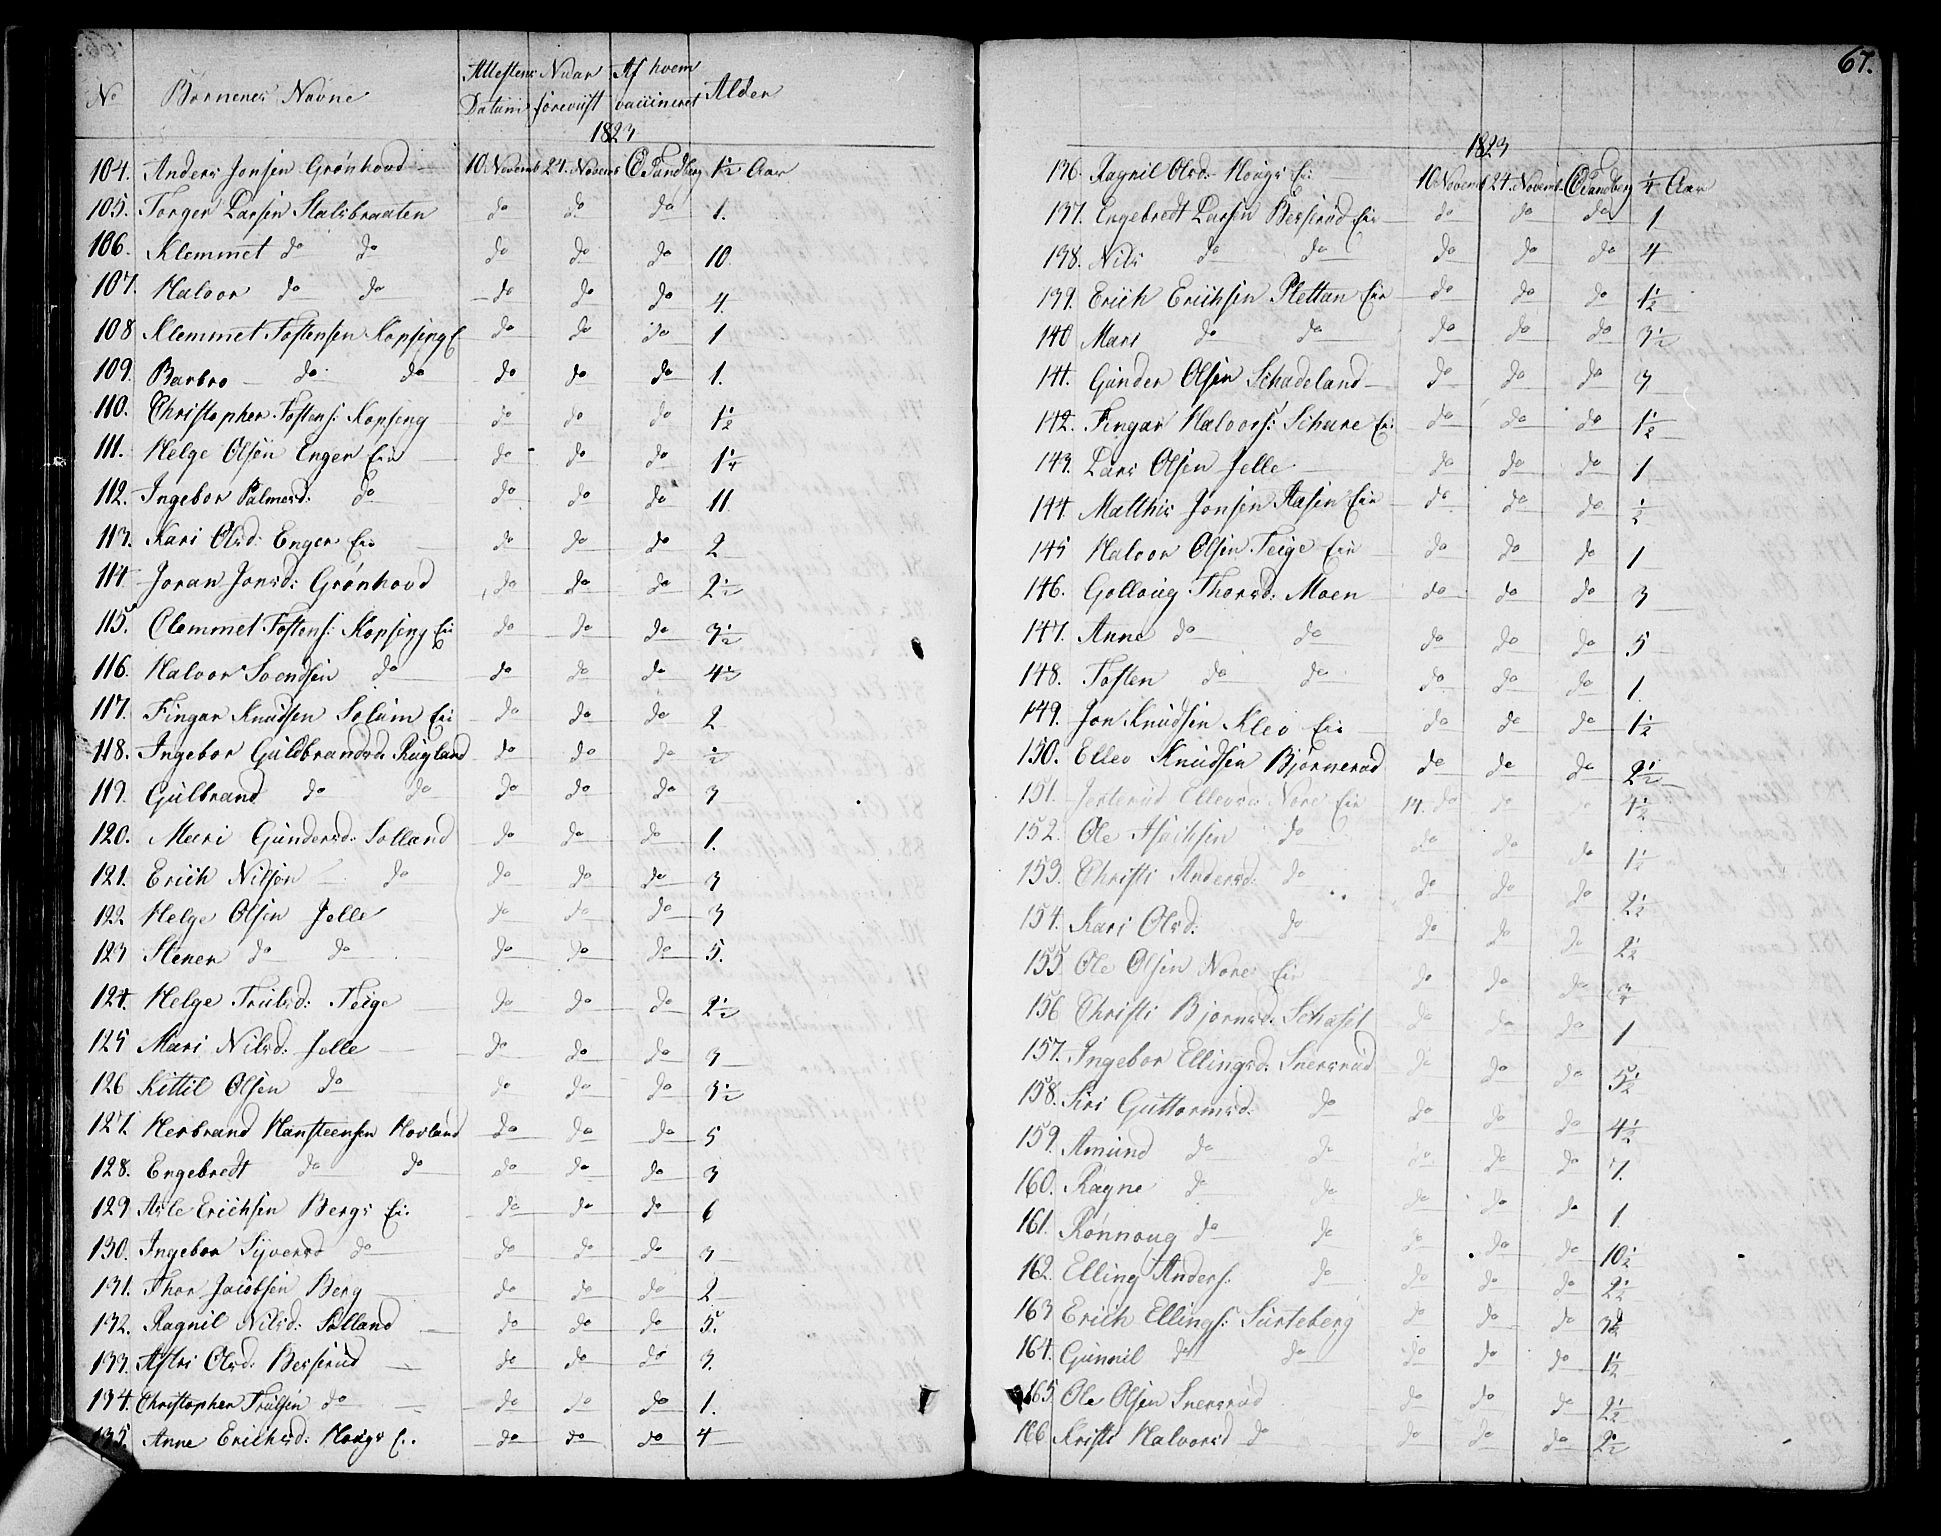 No Børnenes Navne Attestens Datum Naar foreviist Af hvem vaccineret Alder
1823
104. Anders Jonsen Grønhovd 10. Novemb 24. Novemb C Sandberg 1½ Aar
105. Torger Larsen Stalsbraaten do do do 1.
106. Klemmet do do do do do 10.
107. Halvor do do do do do 4.
108 Klemmet Tostensen Kopseng E do do do 1
109. Barbro do do do do do 1.
110. Christopher Tostens: Kopseng do do do 1½
111. Helge Olsen Enger Eie do do do 1¼
112. Ingebor Palmesd: do do do do 11
113. Kari Olsd: Enger Eie do do do 2
114 Joran Jonsd: Grønhovd do do do 2½
115. Clemmet Tostens: Kopseng Ei do do do 3½
116. Halvor Svendsen do do do do 4½
117. Fingar Knudsen Solum Ei do do do 2
118. Ingebor Guldbrandsd: Rugland do do do ½
119. Gulbrand do do do do do 3
120. Mari Gundersd: Solland do do do 1.
121. Erich Nilsøn do do do do 3
122 Helge Olsen Jelle do do do 3
123 Stener do do do do do 5.
124. Helge Trulsd: Teige do do do 2½
125 Mari Nilsd: Jelle do do do 3
126 Kittil Olsen do do do do 3½
127. Herbrand Hansteensen Hovland do do do 5
128. Engebredt do do do do do 3
129 Asle Erichsen Bergs Ei. do do do 6
130. Ingebor Syversd do do do do 3
131. Thor Jacobsen Berg do do do 2
132. Ragnil Nilsd: Solland do do do 5.
133. Astri Olsd: Besserud do do do 3.
134. Christopher Trulsen do do do do 1.
135. Anne Erichsd: Hougs E. do do do 4
67.
1823
136. Ragnil Olsd: Hougs Ei 10 Novemb 24. Novemb. C Sandberg ¼ Aar
137. Engebredt Larsen Besserud Eie do do do 1
138. Nils do do do do do 4
139. Erich Erichsen Plettan Eie do do do 1½
140 Mari do do do do do 3½
141. Gunder Olsen Schadeland do do do 3
142. Fingar Halvors: Schure Ei: do do do 1½
143. Lars Olsen Jelle do do do 1
144. Matthis Jonsen Stasen Eie do do do ½
145 Halvor Olsen Teige Eie do do do 1
146. Golloug Thorsd: Moen do do do 3
147. Anne do do do do do 5
148. Tosten do do do do do 1.
149. Jon Knudsen Klev Eie do do do 1½
150. Ellev Knudsen Bjørnerud do do do 2½
151. Jertrud Ellevsd Nore Eie 14. do do do 4½
152. Ole Isachsen do do do do 1½
153. Christi Andersd: do do do do 2½
154. Kari Olsd: do do do do 2½
155 Ole Olsen Nore Eie do do do ¾
156 Christi Bjørnsd: do do do 1
157. Ingebor Ellingsd: Snersrud do do do 5½
158. Siri Guttormsd: do do do do 4½
159. Amund do do do do do 7.
160. Ragne do do do do do 1.
161. Rønnoug do do do do do 10½
162. Elling Anders: do do do do 2½
163 Erich Ellings: Surteberg do do do 3½
164. Gunnil do do do do do 1½
165. Ole Olsen Snersrud do do do 2½
166 Kristi Halvorsd do do do do 2½